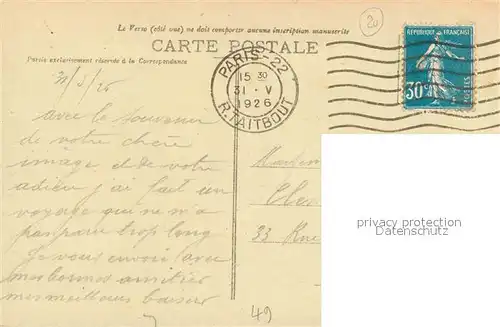 Le Verso (côté vue) ne doit comporter aucune inscription manuscrite
20
CARTE POSTALE
Partie exclusivement réservée à la Correspondance
31/5/26
PARIS-22
15 30
31 - V
1926
R. TAITBOUT
RÉPUBLIQUE FRANÇAISE
30 c
POSTES
avec le souvenir
de votre chère
image et de votre
adieu j'ai fait un
voyage qui ne m'a
pas paru trop long
Je vous envoi avec
mes bonnes amitiés
mes meilleurs baisers
Madem
Clem
33 Rue
49
privacy protection
Datenschutz